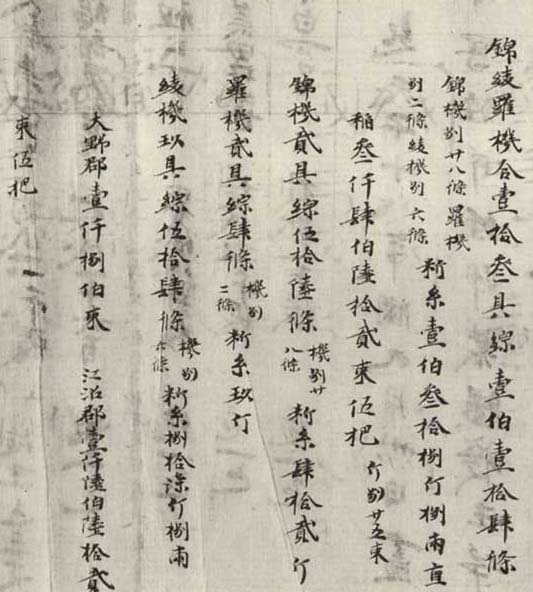 錦綾羅機合壹拾叁具綜壹伯壹拾肆條
錦機別廿八條羅機
別二條綾機別六條
料糸壹伯叁拾捌斤捌兩直
稲叁仟肆伯陸拾貳束伍把 斤別廿五束
錦機貳具綜伍拾陸條 機別廿八條 料糸肆拾貳斤
羅機貳具綜肆條 機別二條 料糸玖斤
綾機玖具綜伍拾肆條 機別六條 料糸捌拾漆斤捌兩
大野郡壹仟捌伯束 江沼郡壹仟陸伯陸拾貳
束伍把